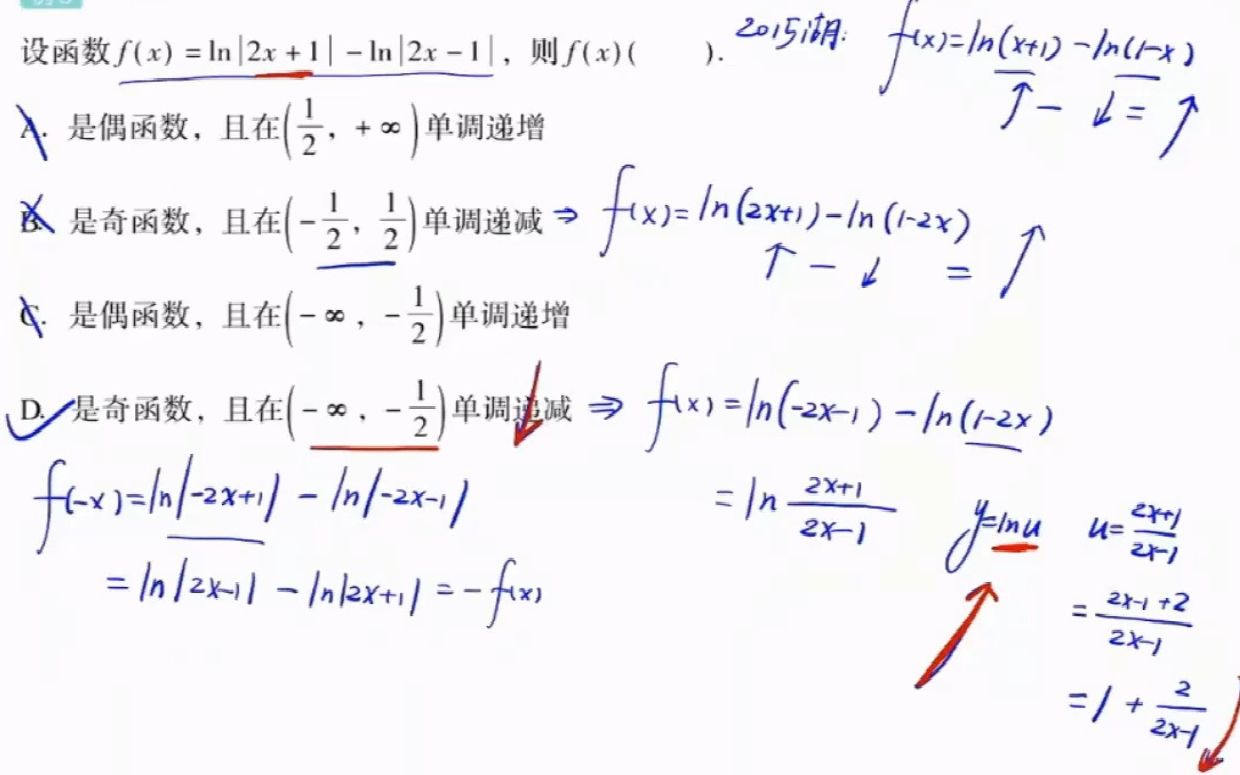 设函数f(x)=ln|2x+1|-ln|2x-1|，则f(x)(　　).
2015湖: f(x)=ln(x+1)-ln(1-x)
↑ - ↓ = ↑
A. 是偶函数，且在(1/2，+∞)单调递增
B. 是奇函数，且在(-1/2，1/2)单调递减 ⇒ f(x)=ln(2x+1)-ln(1-2x)
↑ - ↓ = ↑
C. 是偶函数，且在(-∞，-1/2)单调递增
D. 是奇函数，且在(-∞，-1/2)单调递减 ⇒ f(x)=ln(-2x-1)-ln(1-2x)
=ln (2x+1)/(2x-1)
y=lnu u=(2x+1)/(2x-1)
=(2x-1+2)/(2x-1)
=1+2/(2x-1)
f(-x)=ln|-2x+1|-ln|-2x-1|
=ln|2x-1|-ln|2x+1|=-f(x)